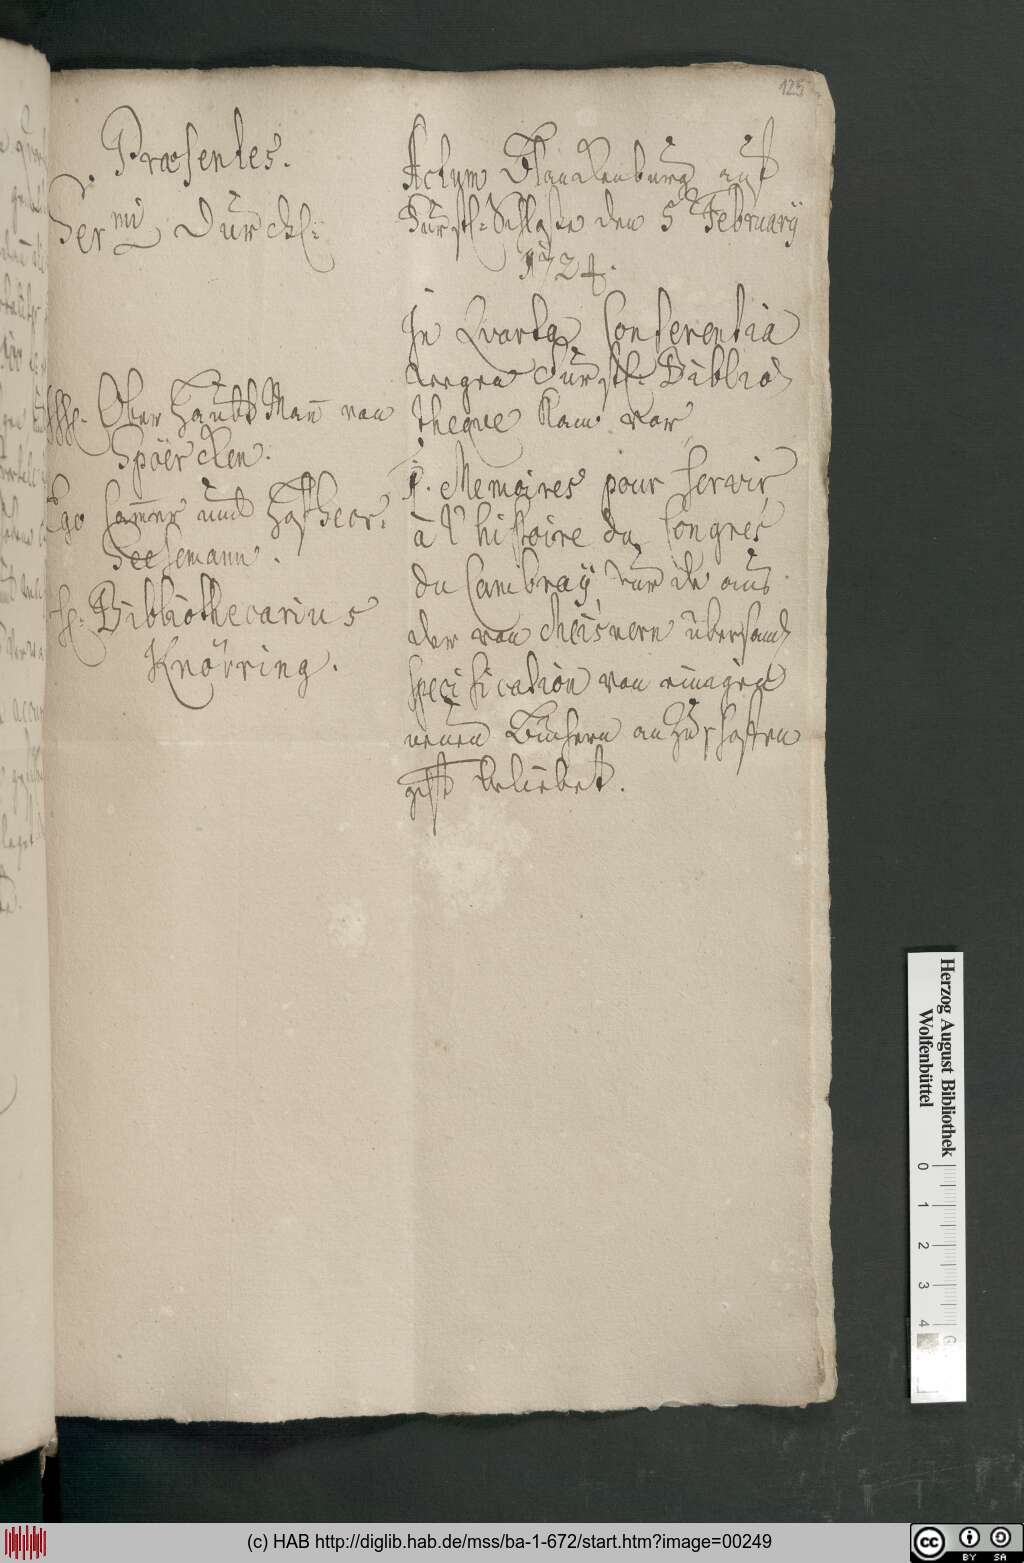 125
Præsentes.
Ser.mi Durchl:
Ober Haubt Man̄ von
Spöercken.
Ego Cam̄er und
Seesemann.
H: Bibliothecarius
Knörring.
Actum Blanckenburg auf
Fürstl: Schloße den 5 February
1724.
In Quarta Conferentia
wegen Fürstl: Biblio-
theque kam vor
1. Memoires pour servir
à l'histoire du Congres
du Cambraÿ, wurde aus
der von Meisnern übersand
specification von einigen
neuen Büchern anzuschaffen
gdst beliebet.
Herzog August Bibliothek
Wolfenbüttel
0 1 2 3 4
(c) HAB http://diglib.hab.de/mss/ba-1-672/start.htm?image=00249
cc BY SA